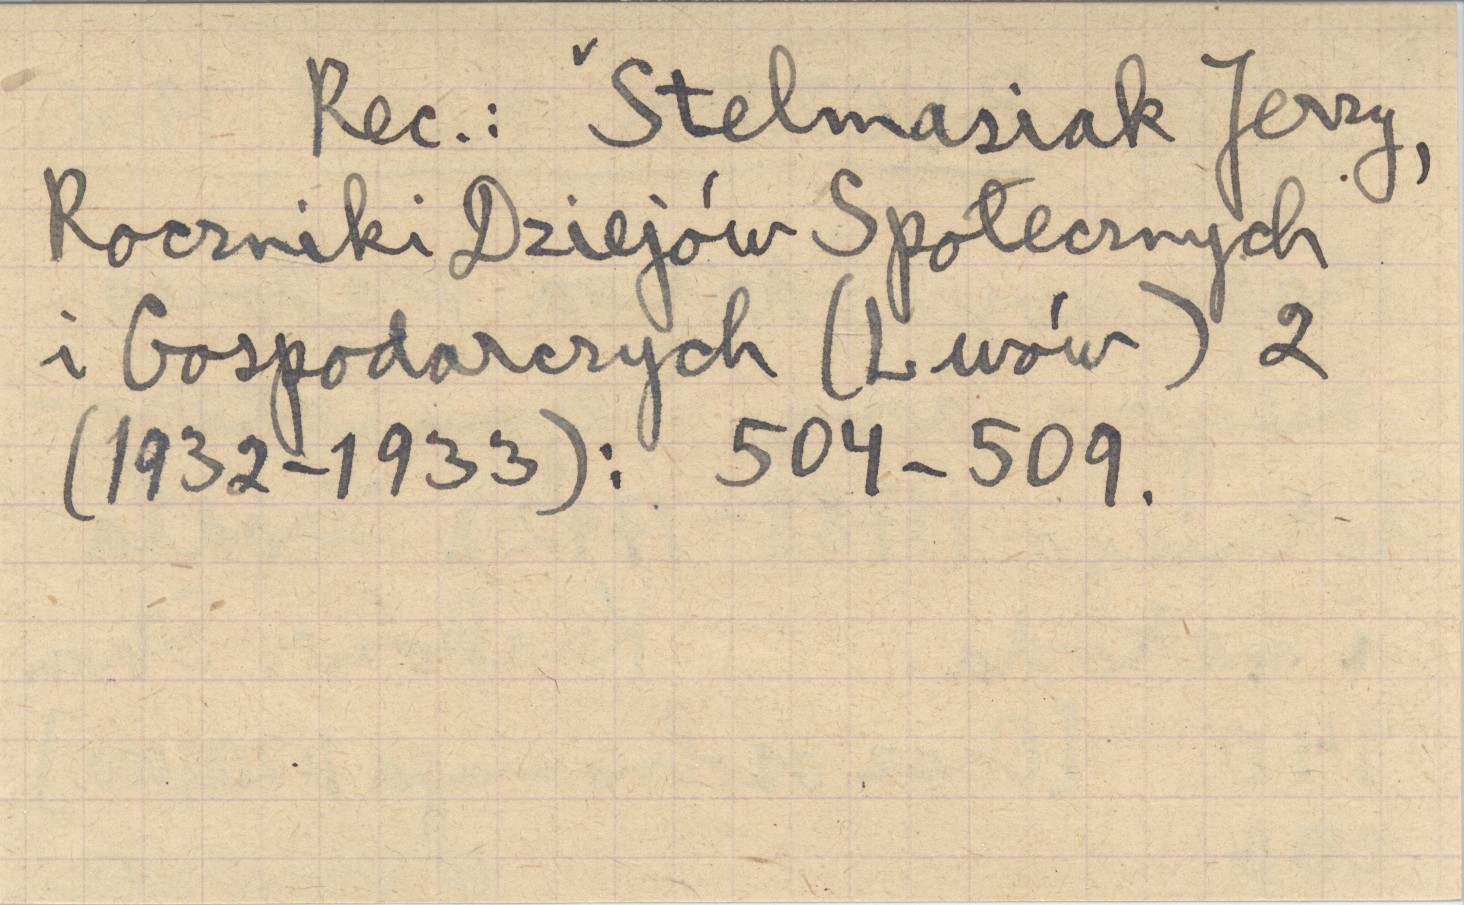 Rec.: ᵛStelmasiak Jerzy,
Roczniki Dziejów Społecznych
i Gospodarczych (Lwów) 2
(1932-1933): 504-509.